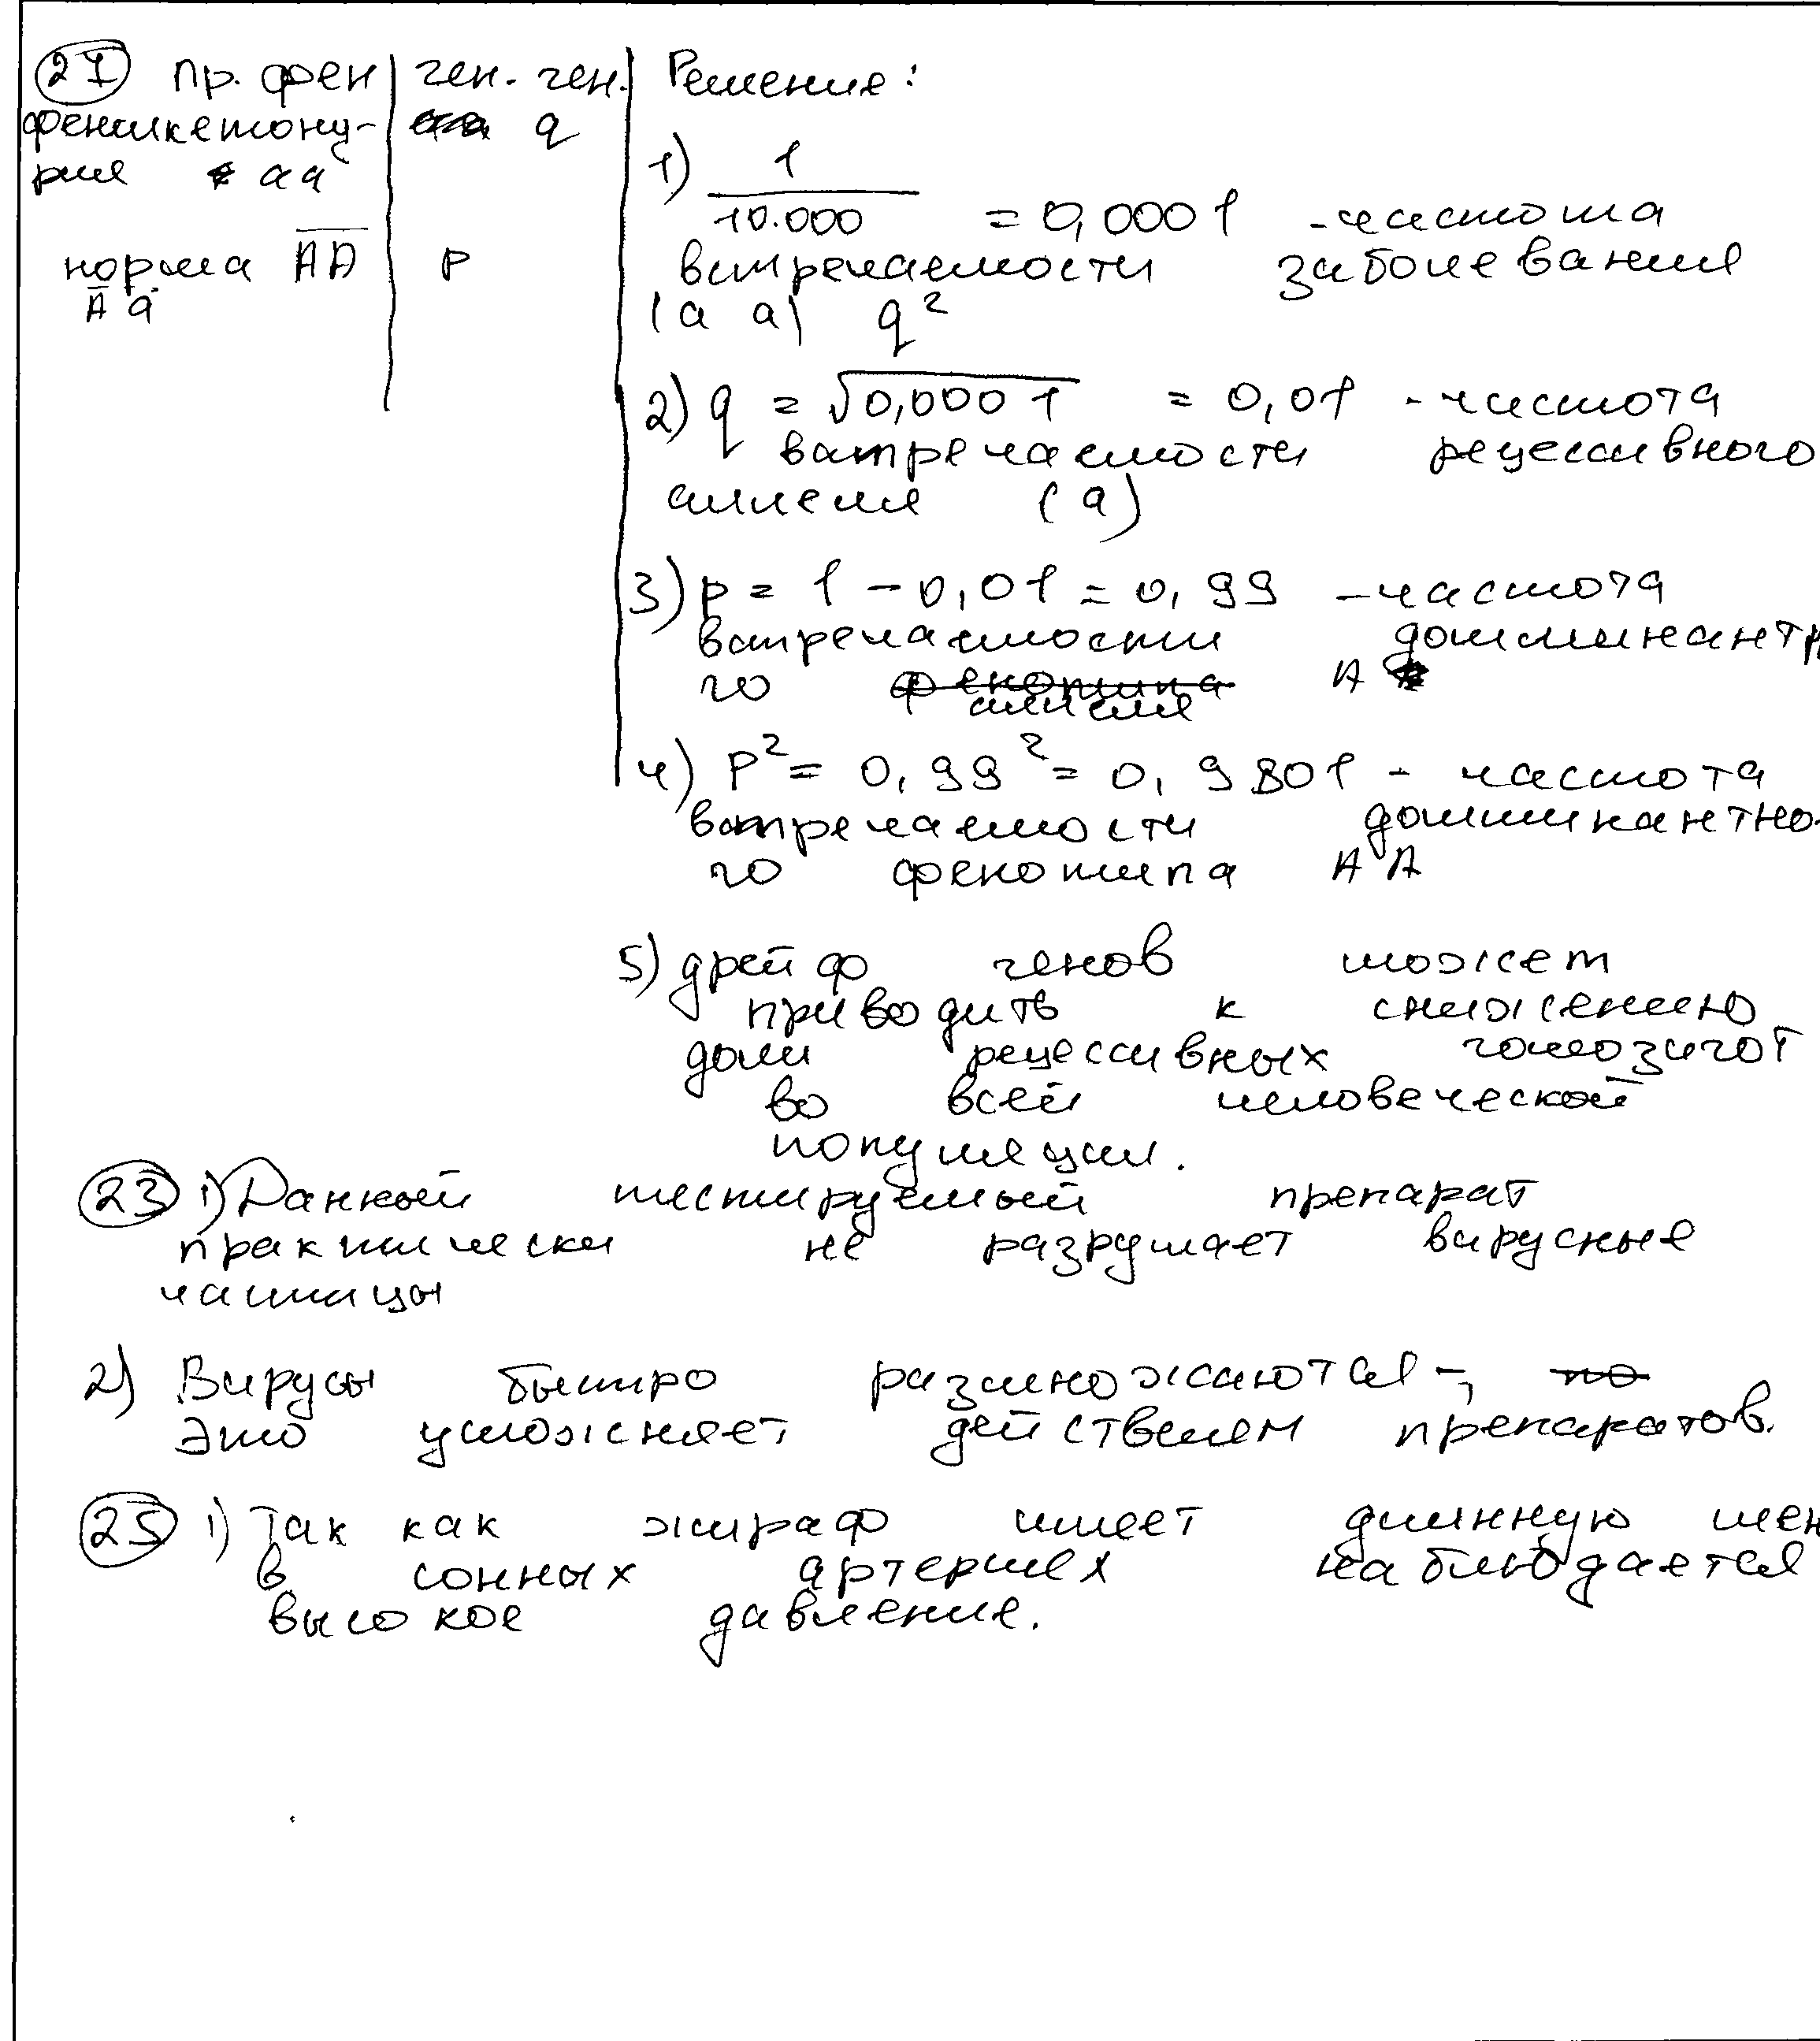 27 пр. фен ген. ген. Решение:
фенилкетону- q
рия аа
1) 1
10.000 = 0,0001 - частота
норма АА р встречаемости заболевания
Аа (а а) q²
2) q = √0,0001 = 0,01 - частота
встречаемости рецессивного
аллеля (а)
3) р = 1 - 0,01 = 0,99 - частота
встречаемости доминантн
го фенотипа А
аллеля
4) Р² = 0,99² = 0,9801 - частота
встречаемости доминантно-
го фенотипа АА
5) дрейф генов может
приводить к снижению
доли рецессивных гомозигот
во всей человеческой
популяции.
23 1) Данный тестируемый препарат
практически не разрушает вирусные
частицы
2) Вирусы быстро размножаются -, но
это усложняет действием препаратов.
25 1) Так как жираф имеет длинную шею
в сонных артериях наблюдается
высокое давление.